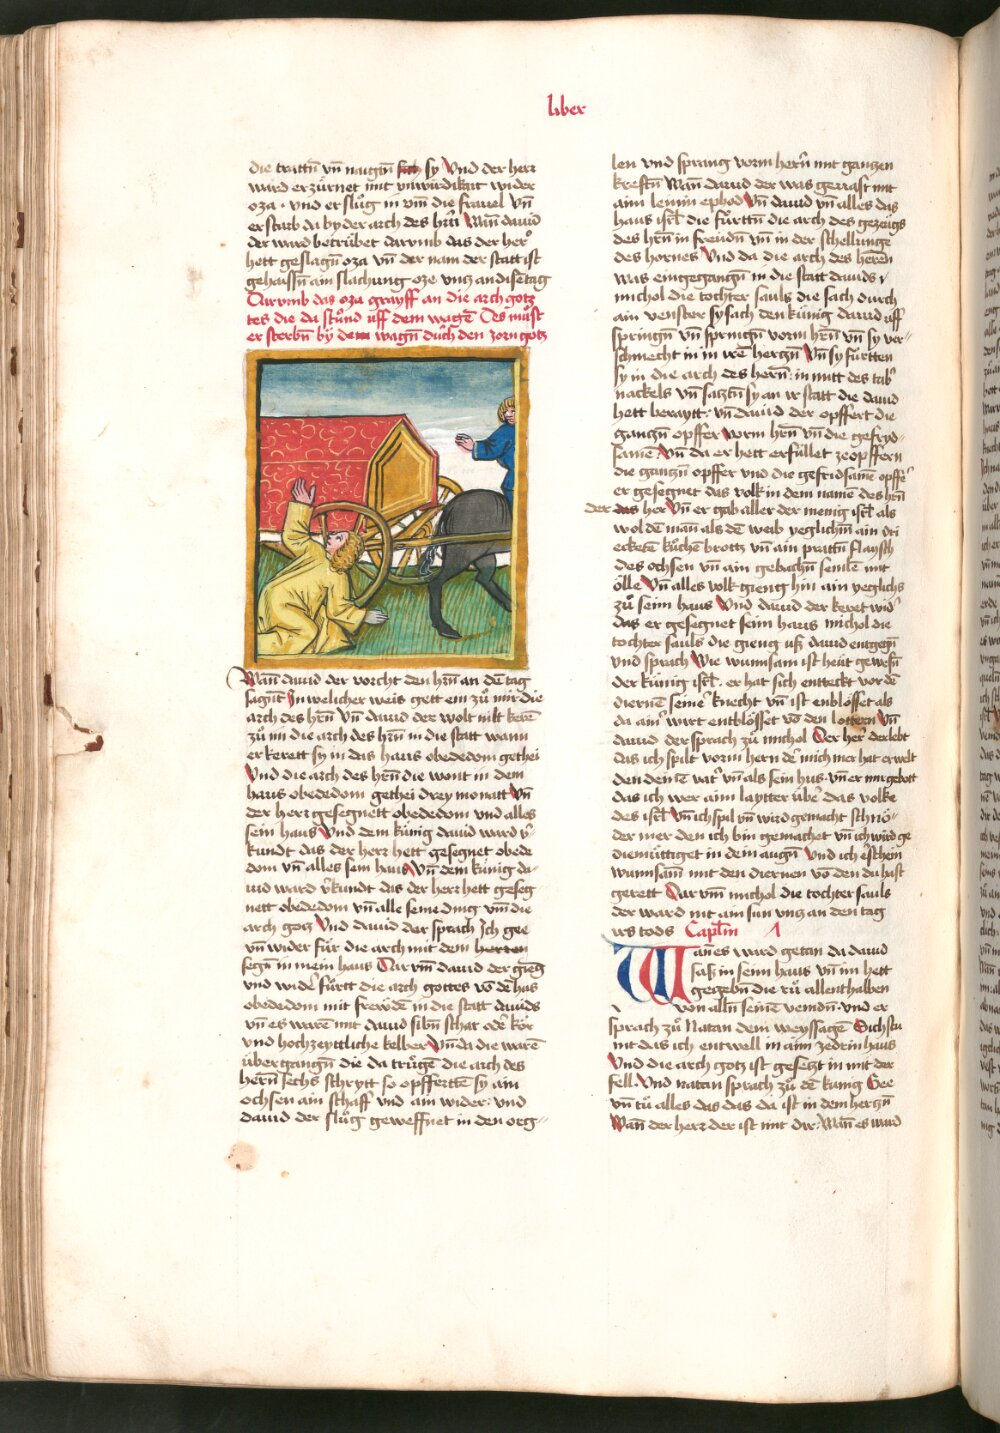 liber
die trattñ vñ naigtñ sich sy Vnd der herr
ward erzürnet mit vnwirdikait wider
oza · vnd er slůg in vm̄ die frauel vñ
er starb da by der arch des hrñ Wañ dauid
der ward betrübet darvmb das der her
hett geslagñ oza vñ der nam der statt ist
gehaissñ ain slachung oze vncz an disē tag
Darvmb das oza grayff an die arch gotz
tes die da stůnd vff dem wagē Des můst
er sterbñ bÿ dem wagñ durch den zorn gotz
Wañ dauid der vorcht den hrñ an dē tag
sagñt In welicher weis gett ein zů mir die
arch des hrñ Vñ dauid der wolt nit kerē
zů im die arch des hrñ in die statt wann
er kerett sy in das haus obededom gethei
Vnd die arch des hrñ die wont in dem
haus obededom gethei drey monatt Vñ
der herr gesegnett obededom vnd alles
sein haus Vnd dem künig dauid ward v̄
kundt das der herr hett gesegnet obede
dom vñ alles sein haus Vñ dem künig da-
uid ward v̄kundt das der herr hett geseg
nett obededom vñ alle seine ding vm̄ die
arch gotz Vnd dauid der sprach Ich gee
vñ wider für die arch mit dem herren
segñ in mein haus Darvm̄ dauid der gieng
vnd widē fürtt die arch gottes vō dē has
obededom mit frewden in die statt dauids
vñ es warē mit dauid sibñ schar odē kör
vnd hochzeyttliche kelber Vñ da die warē
übergangñ die da trůgē die arch des
herñ sechs schrytt so opffertē sy ain
ochsen ain schaff vnd ain wider · vnd
dauid der slůg geweffnet in den org-
len vnd sprang vorm herñ mit ganzen
kreftñ Wañ dauid der was gerrast mit
aim leinin ephod Vñ dauid vñ alles das
haus isrl die fürttñ die arch des gezeugs
des hrñ in freudñ vñ in der schellunge
des hornes Vnd da die arch des herrēn
was eingegangñ in die statt dauids
michol die tochter sauls die sach durch
ain venster sy sach den künig dauid uff
springñ vñ springñ vorm hrñ vñ sy ver-
schmecht in in irē herczñ Vñ sy fürtten
sy in die arch des herrñ · in mitt des tab
nackels vñ saztñ sy an ir statt die dauid
hett beraytt · vñ dauid der opffert die
gancñ opffer vorm hrñ vñ die gefryd-
samē Vñ da er hett erfüllet ze opffern
die gancñ opffer vnd die gefridsamē opffē
er gesegnet das volk in dem namē des hrñ
der das her Vñ er gab aller der menig isrl als
wol dē man als dē weib yeglichm̄ ain dri
ecketē kůchē brottz vñ ain prattñ flaysch
des ochsen vñ ain gebachñ semlē mit
ölle Vñ alles volk gieng hin ain yeglichs
zů seim haus Vnd dauid der keret wid
das er gesegnet seim haus michol die
tochter sauls die gieng uß dauid entgegñ
vnd sprach Wie wunnsam ist heut gewesñ
der künig isrl · er hat sich entteckt vor dē
diernē seinē knecht vñ ist enblösset als
da ainē wirt entblösset vō den lottern Vñ
dauid der sprach zů michol Der her der lebt
das ich spilt vorm hern dē mich mer hat erwelt
den deinē vatē vñ als sein hus · vñ er mir gebott
das ich wer aim laytter übē das volke
des isrl Vñ ich spil vñ wird gemacht schnö-
der mer den ich bin gemachet vñ ich wird ge
diemüttiget in dem augñ Vnd ich eschein
wunnsam̄ mit den diernen vō den du hast
gerett Darvm̄ michol die tochter sauls
der ward nit ain sun vncz an den tag
irs tods Caplm̄
Wañ es ward getan da dauid
saß in seim haus vñ im hett
gegebñ die rů allenthalben
von alln̄ seinē veindñ · vnd er
sprach zů Natan dem weyssagē Sichstu
nit das ich entwell in aim zedrin haus
Vnd die arch gotz ist gesetzt in mit der
fell · Vnd natan sprach zů dē künig Gee
vñ tů alles das das da ist in dem herczñ
Wañ der herr der ist mit dir · Wañ es ward